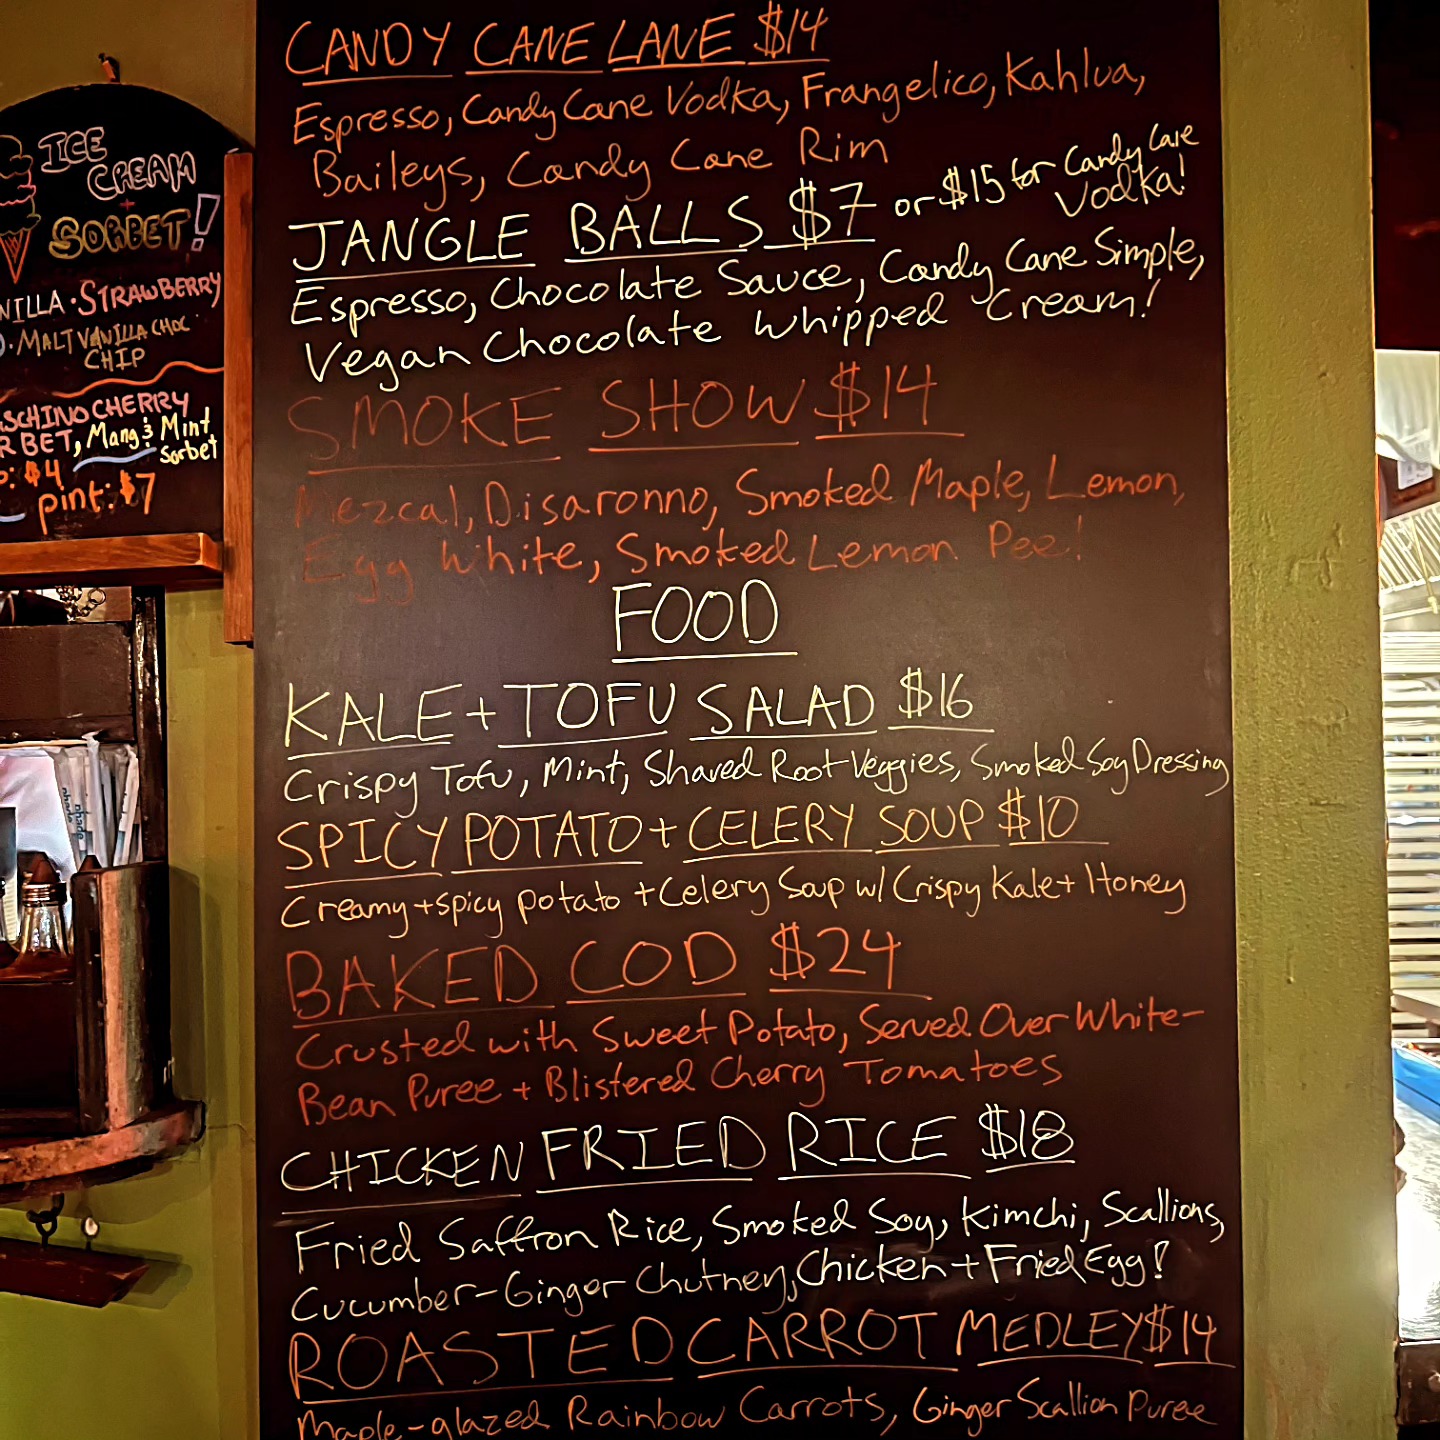 ICE
CREAM
+
SORBET!
STRAWBERRY
MALT VANILLA CHOC
CHIP
CHERRY
Mango & Mint
Sorbet
$4
pint: $7
CANDY CANE LANE $14
Espresso, Candy Cane Vodka, Frangelico, Kahlua,
Baileys, Candy Cane Rim
JANGLE BALLS $7 or $15 for Candy Cane
Vodka!
Espresso, Chocolate Sauce, Candy Cane Simple,
Vegan Chocolate Whipped Cream!
SMOKE SHOW $14
Mezcal, Disaronno, Smoked Maple, Lemon,
Egg White, Smoked Lemon Peel
FOOD
KALE + TOFU SALAD $16
Crispy Tofu, Mint, Shaved Root Veggies, Smoked Soy Dressing
SPICY POTATO + CELERY SOUP $10
Creamy + spicy potato + Celery Soup w/ Crispy Kale + Honey
BAKED COD $24
Crusted with Sweet Potato, Served Over White-
Bean Puree + Blistered Cherry Tomatoes
CHICKEN FRIED RICE $18
Fried Saffron Rice, Smoked Soy, Kimchi, Scallions,
Cucumber-Ginger Chutney, Chicken + Fried Egg!
ROASTED CARROT MEDLEY $14
Maple-glazed Rainbow Carrots, Ginger Scallion Puree